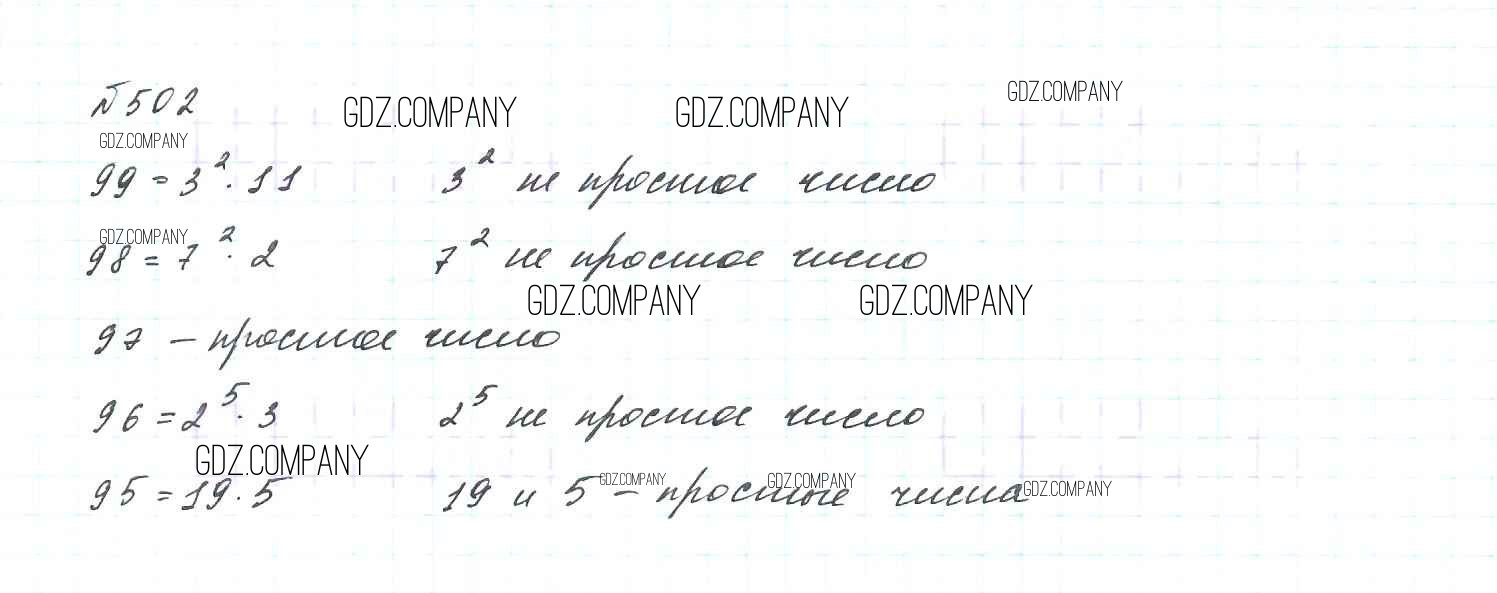 №502
GDZ.COMPANY GDZ.COMPANY GDZ.COMPANY
GDZ.COMPANY
99 = 3² · 11 3² не простое число
GDZ.COMPANY
98 = 7² · 2 7² не простое число
GDZ.COMPANY GDZ.COMPANY
97 – простое число
96 = 2⁵ · 3 2⁵ не простое число
GDZ.COMPANY
GDZ.COMPANY GDZ.COMPANY GDZ.COMPANY
95 = 19 · 5 19 и 5 – простые числа